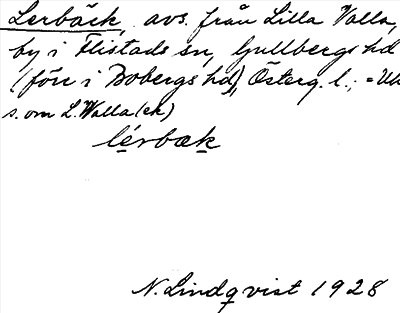 Lerbäck, avs. från Lilla Valla,
by i Flistads sn, Gullbergs hd
(förr i Bobergs hd), Österg. l.; =Uk
s. om L. Walla (ek)
lérbæk
N. Lindqvist 1928